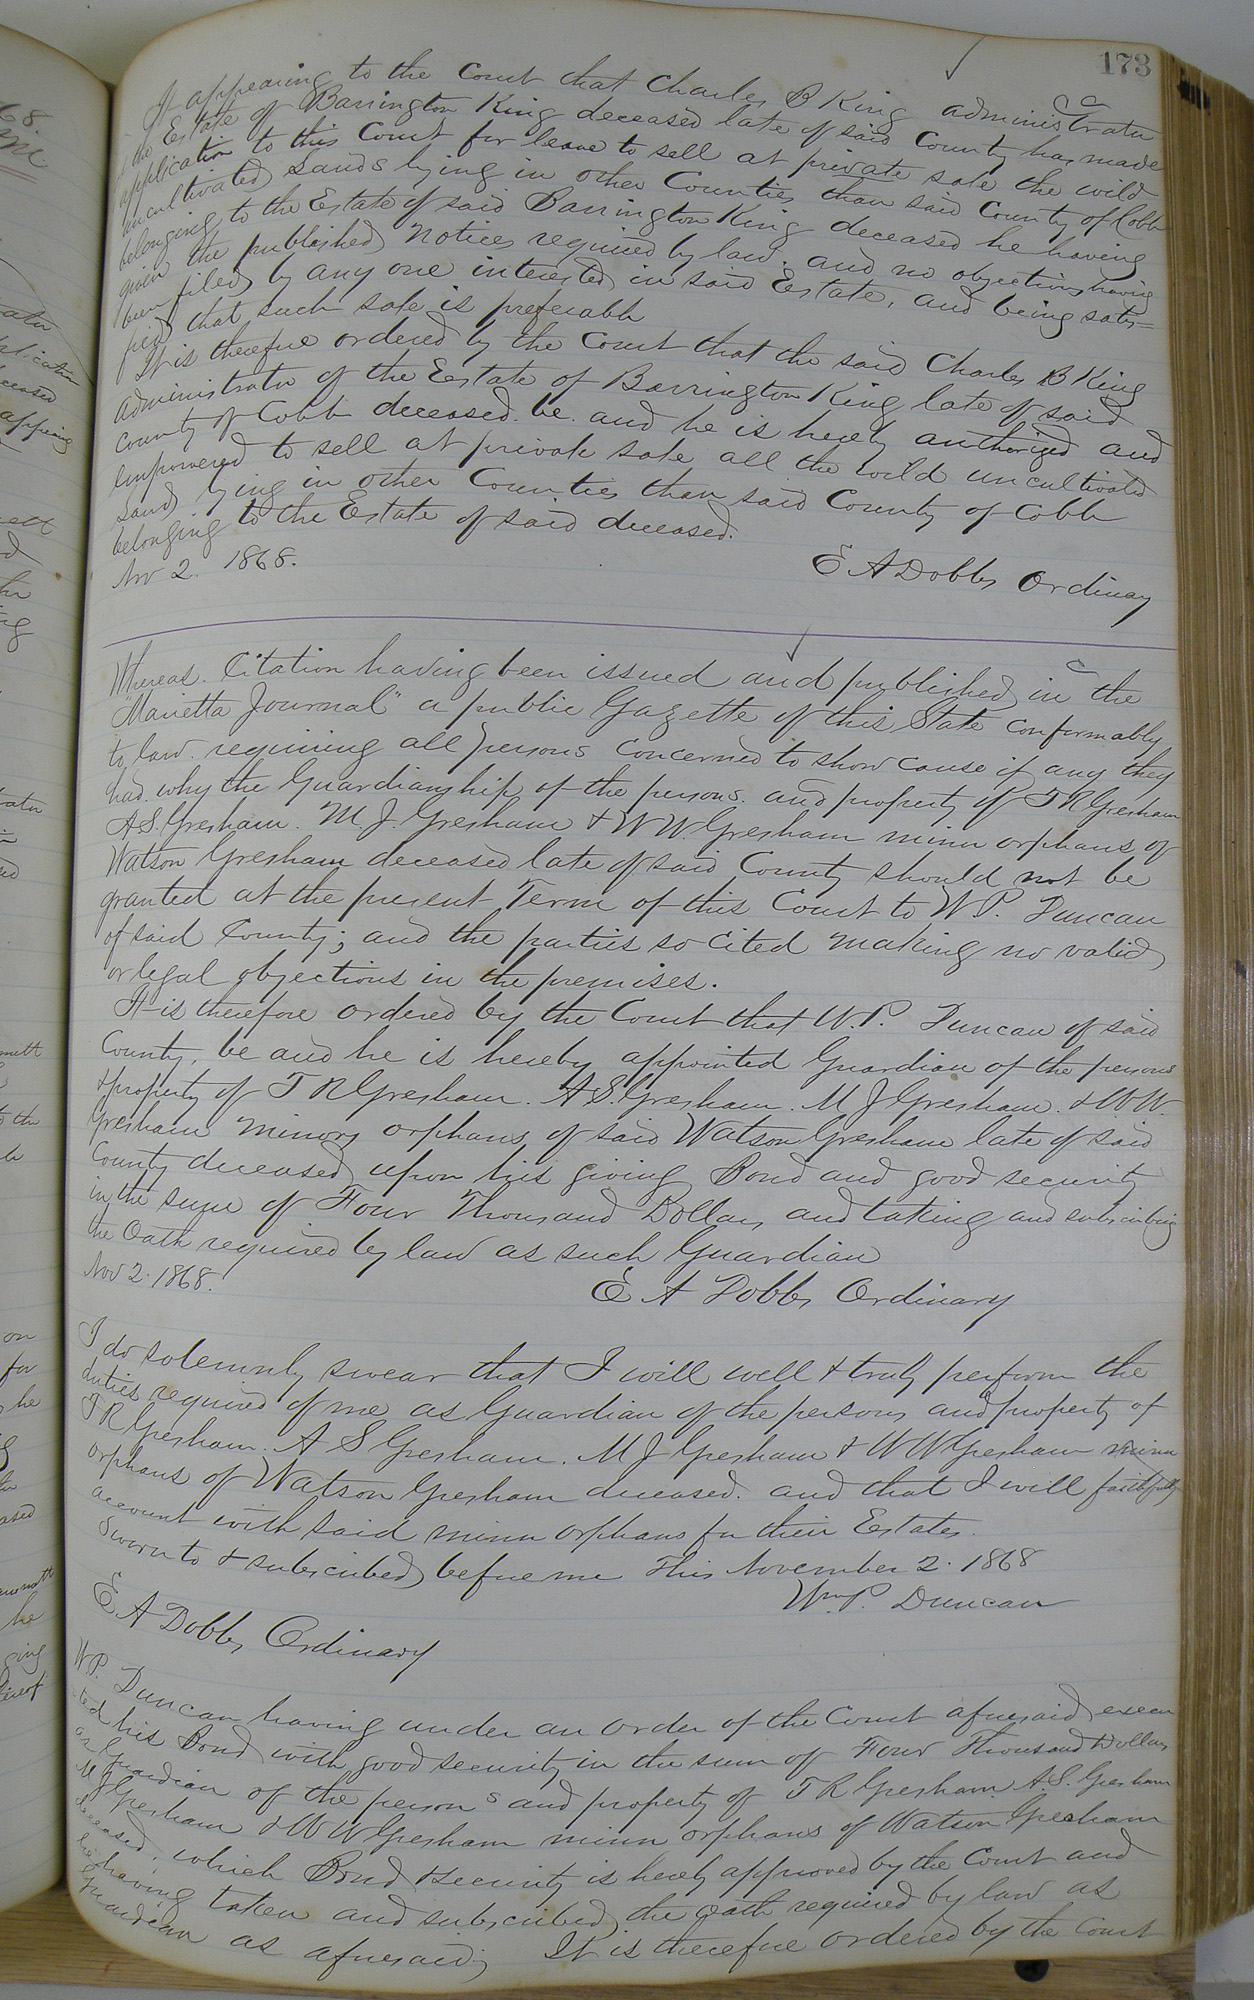 173
It appearing to the Court that Charles B King administrator
of the Estate of Barrington King deceased late of said County has made
application to this Court for leave to sell at private sale the wild
uncultivated Lands lying in other Counties than said County of Cobb
belonging to the Estate of said Barrington King deceased he having
given the published notices required by law. and no objections having
been filed by any one interested in said Estate, and being satis=
fied that such sale is preferable
It is therefore ordered by the Court that the said Charles B King
administrator of the Estate of Barrington King late of said
County of Cobb deceased. be. and he is hereby authorized and
empowered to sell at private sale all the wild uncultivated
Land lying in other Counties than said County of Cobb
belonging to the Estate of said deceased.
Nov 2. 1868.
E A Dobbs Ordinary
Whereas. Citation having been issued and published in the
Marietta Journal" a public Gazette of this State conformably
to law. requiring all persons concerned to show cause if any they
had. why the Guardianship of the persons. and property of T R Gresham
A.S. Gresham. M. J. Gresham & W W. Gresham minor orphans of
Watson Gresham deceased late of said County should not be
granted at the present Term of this Court to W P. Duncan
of said County; and the parties so cited making no valid
or legal objections in the premises.
It is therefore ordered by the Court that W. P. Duncan of said
County, be and he is hereby appointed Guardian of the persons
& property of T R Gresham. A S. Gresham. M J Gresham. & W W.
Gresham minors orphans of said Watson Gresham late of said
County deceased upon his giving Bond and good security
in the sum of Four Thousand Dollars and taking and subscribing
the Oath required by law as such Guardian
Nov 2. 1868.
E A Dobbs Ordinary
I do solemnly swear that I will well & truly perform the
duties required of me as Guardian of the persons and property of
T R Gresham. A S Gresham. M J Gresham & W W Gresham minor
orphans of Watson Gresham deceased. and that I will faithfully
account with said minor orphans for their Estates.
Sworn to & subscribed before me This November 2. 1868
Wm P. Duncan
E A Dobbs Ordinary
W P. Duncan having under an order of the Court aforesaid execu
ted his Bond with good security in the sum of Four Thousand Dollars
as Guardian of the persons and property of T R Gresham. A.S. Gresham
M J Gresham & W W Gresham minor orphans of Watson Gresham
deceased, which Bond & security is hereby approved by the Court and
he having taken and subscribed the oath required by law as
Guardian as aforesaid; It is therefore ordered by the Court